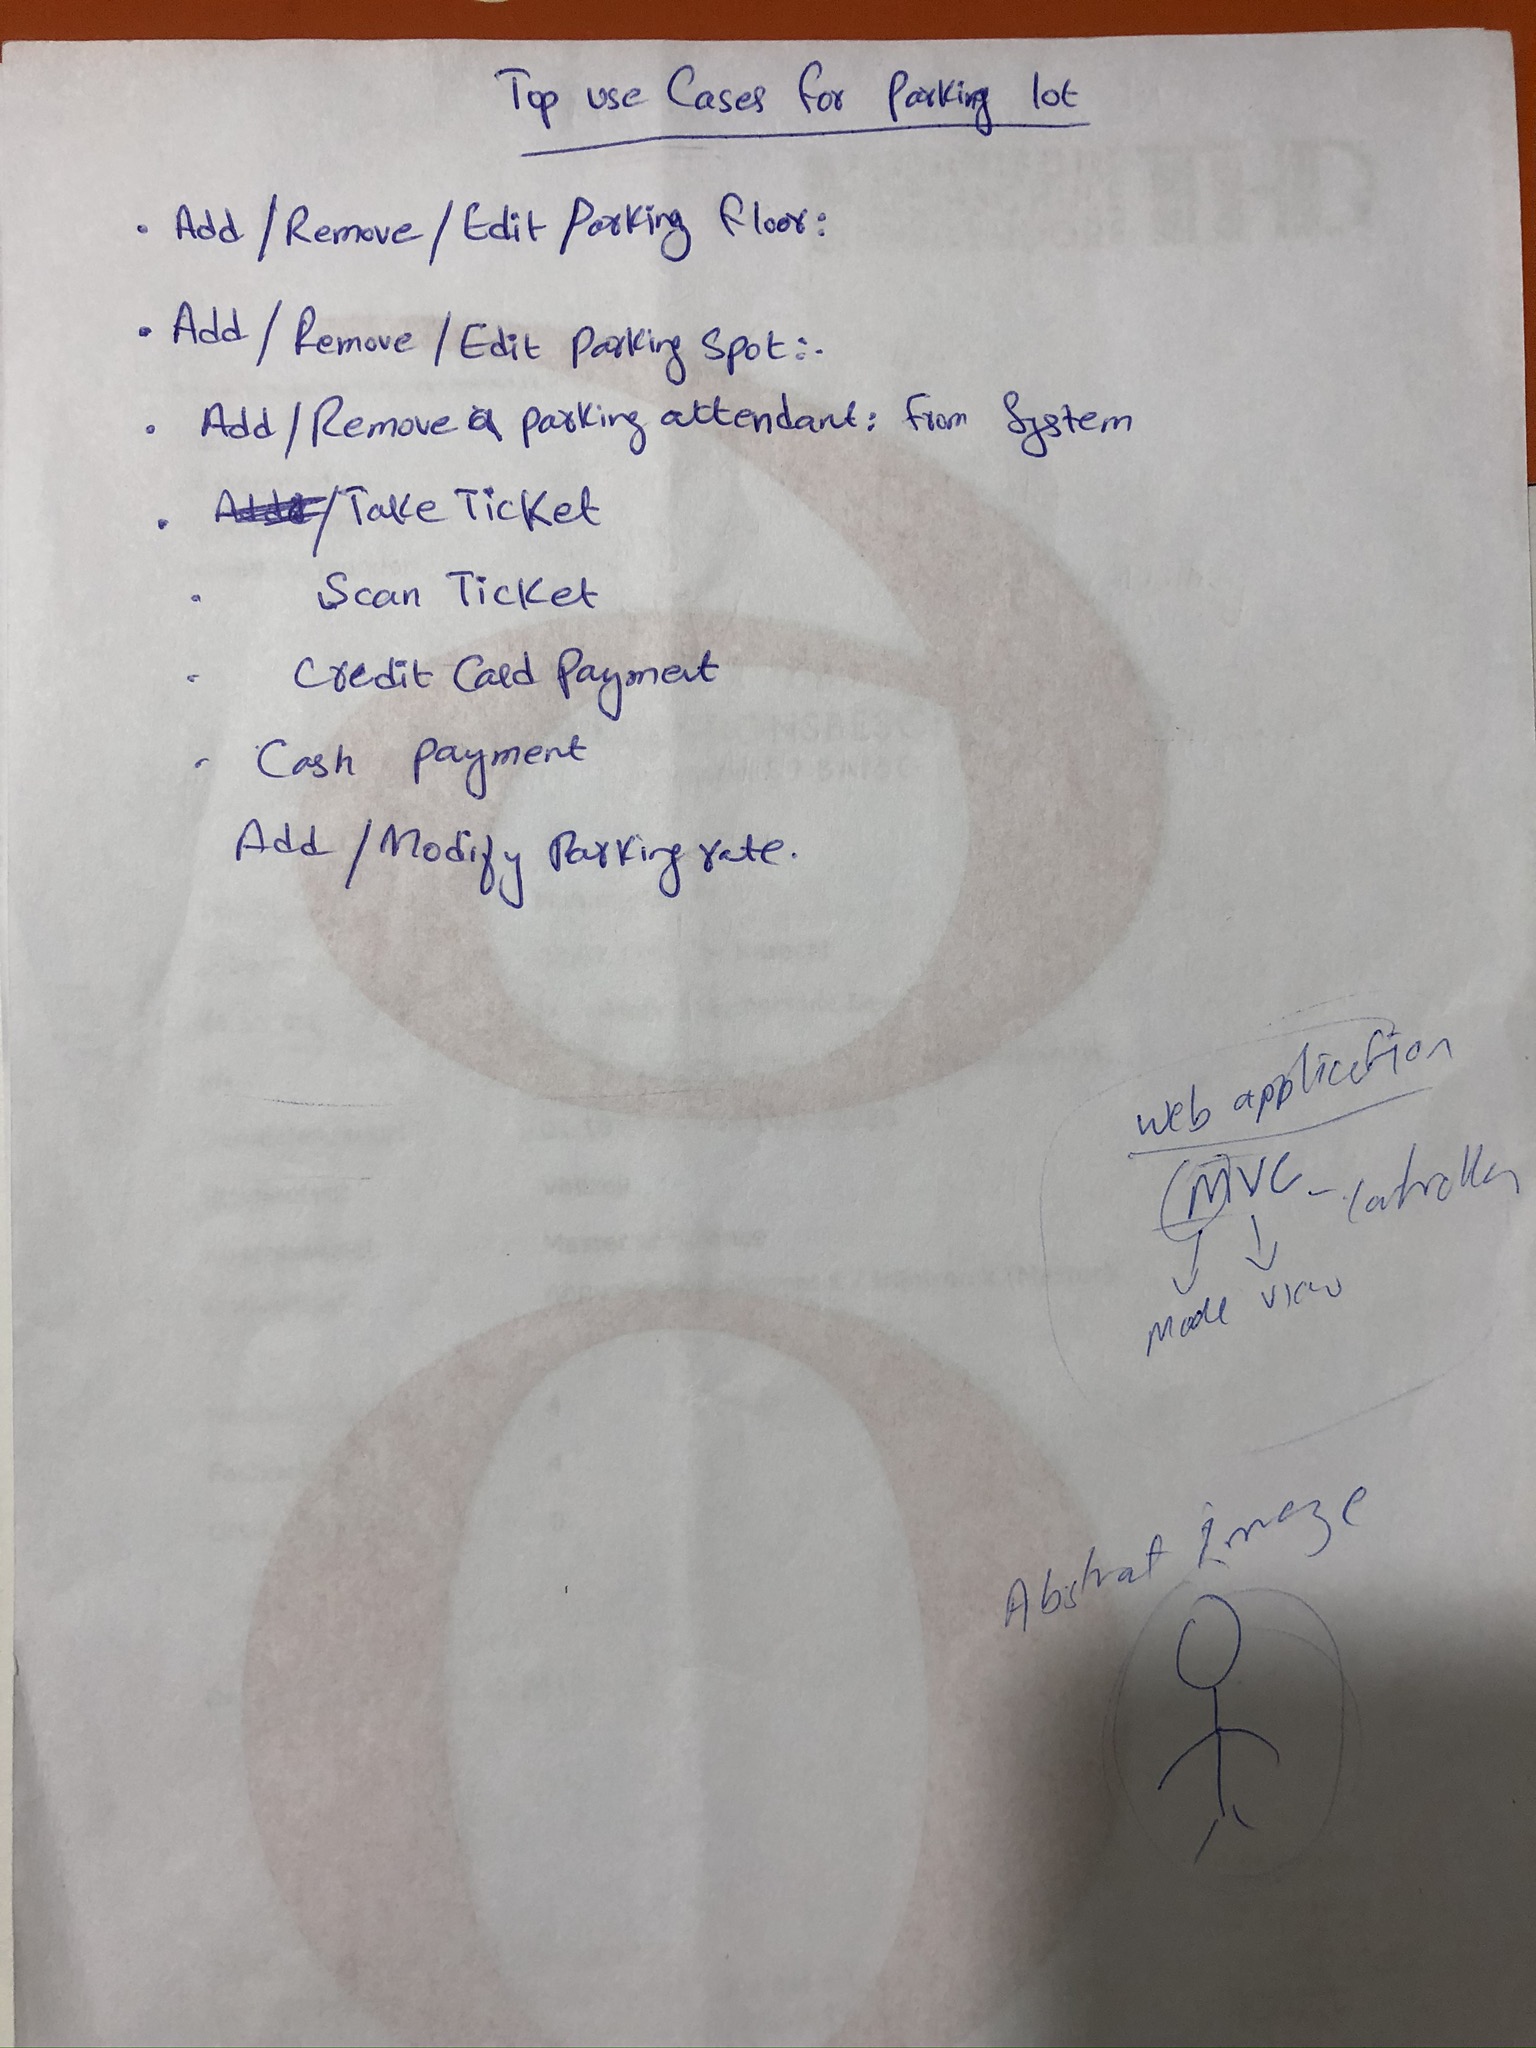 Top use Cases for Parking lot
• Add / Remove / Edit Parking floor:
• Add / Remove / Edit Parking Spot:-
• Add / Remove a parking attendant: from System
• /Take Ticket
• Scan Ticket
• Credit Card Payment
• Cash payment
Add / Modify Parking rate.
Web application
MVC - Controller
Model View
Abstrat Image